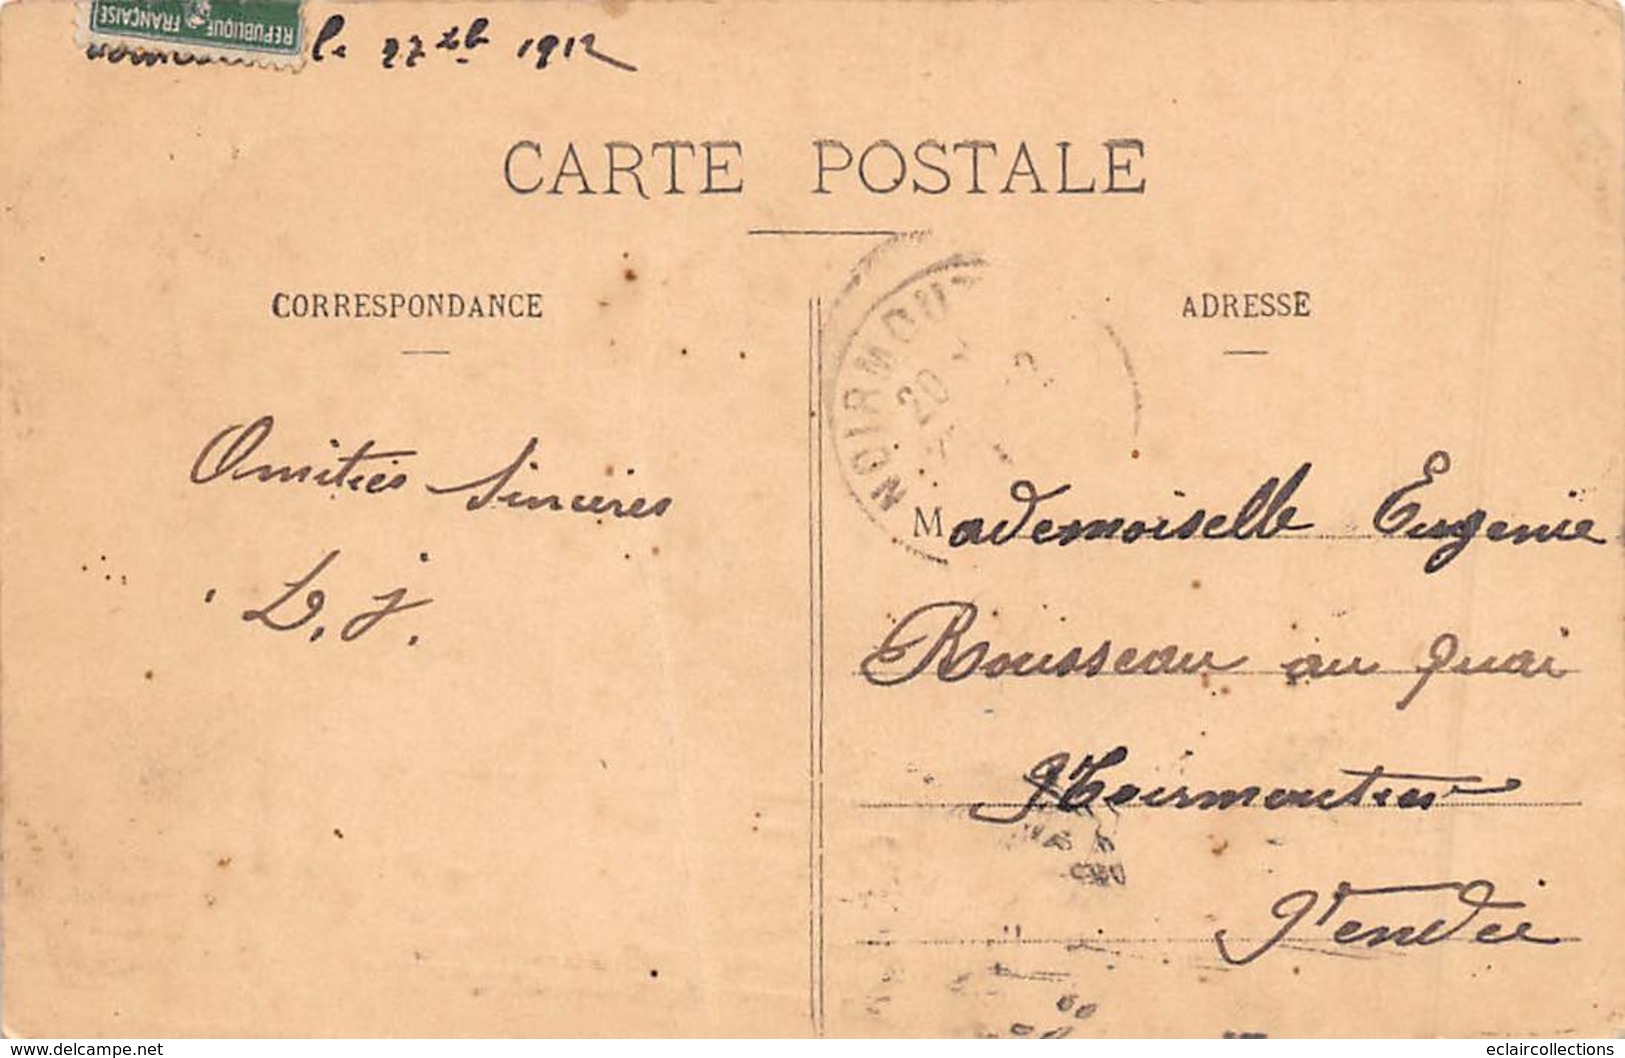 REPUBLIQUE FRANÇAISE
le 27 xb 1912
CARTE POSTALE
CORRESPONDANCE
ADRESSE
NOIRMOUT
20
Amitiés Sincères
L. J.
Mademoiselle Eugenie
Rousseau au quai
Noirmoutier
Vendée
www.delcampe.net
eclaircollections